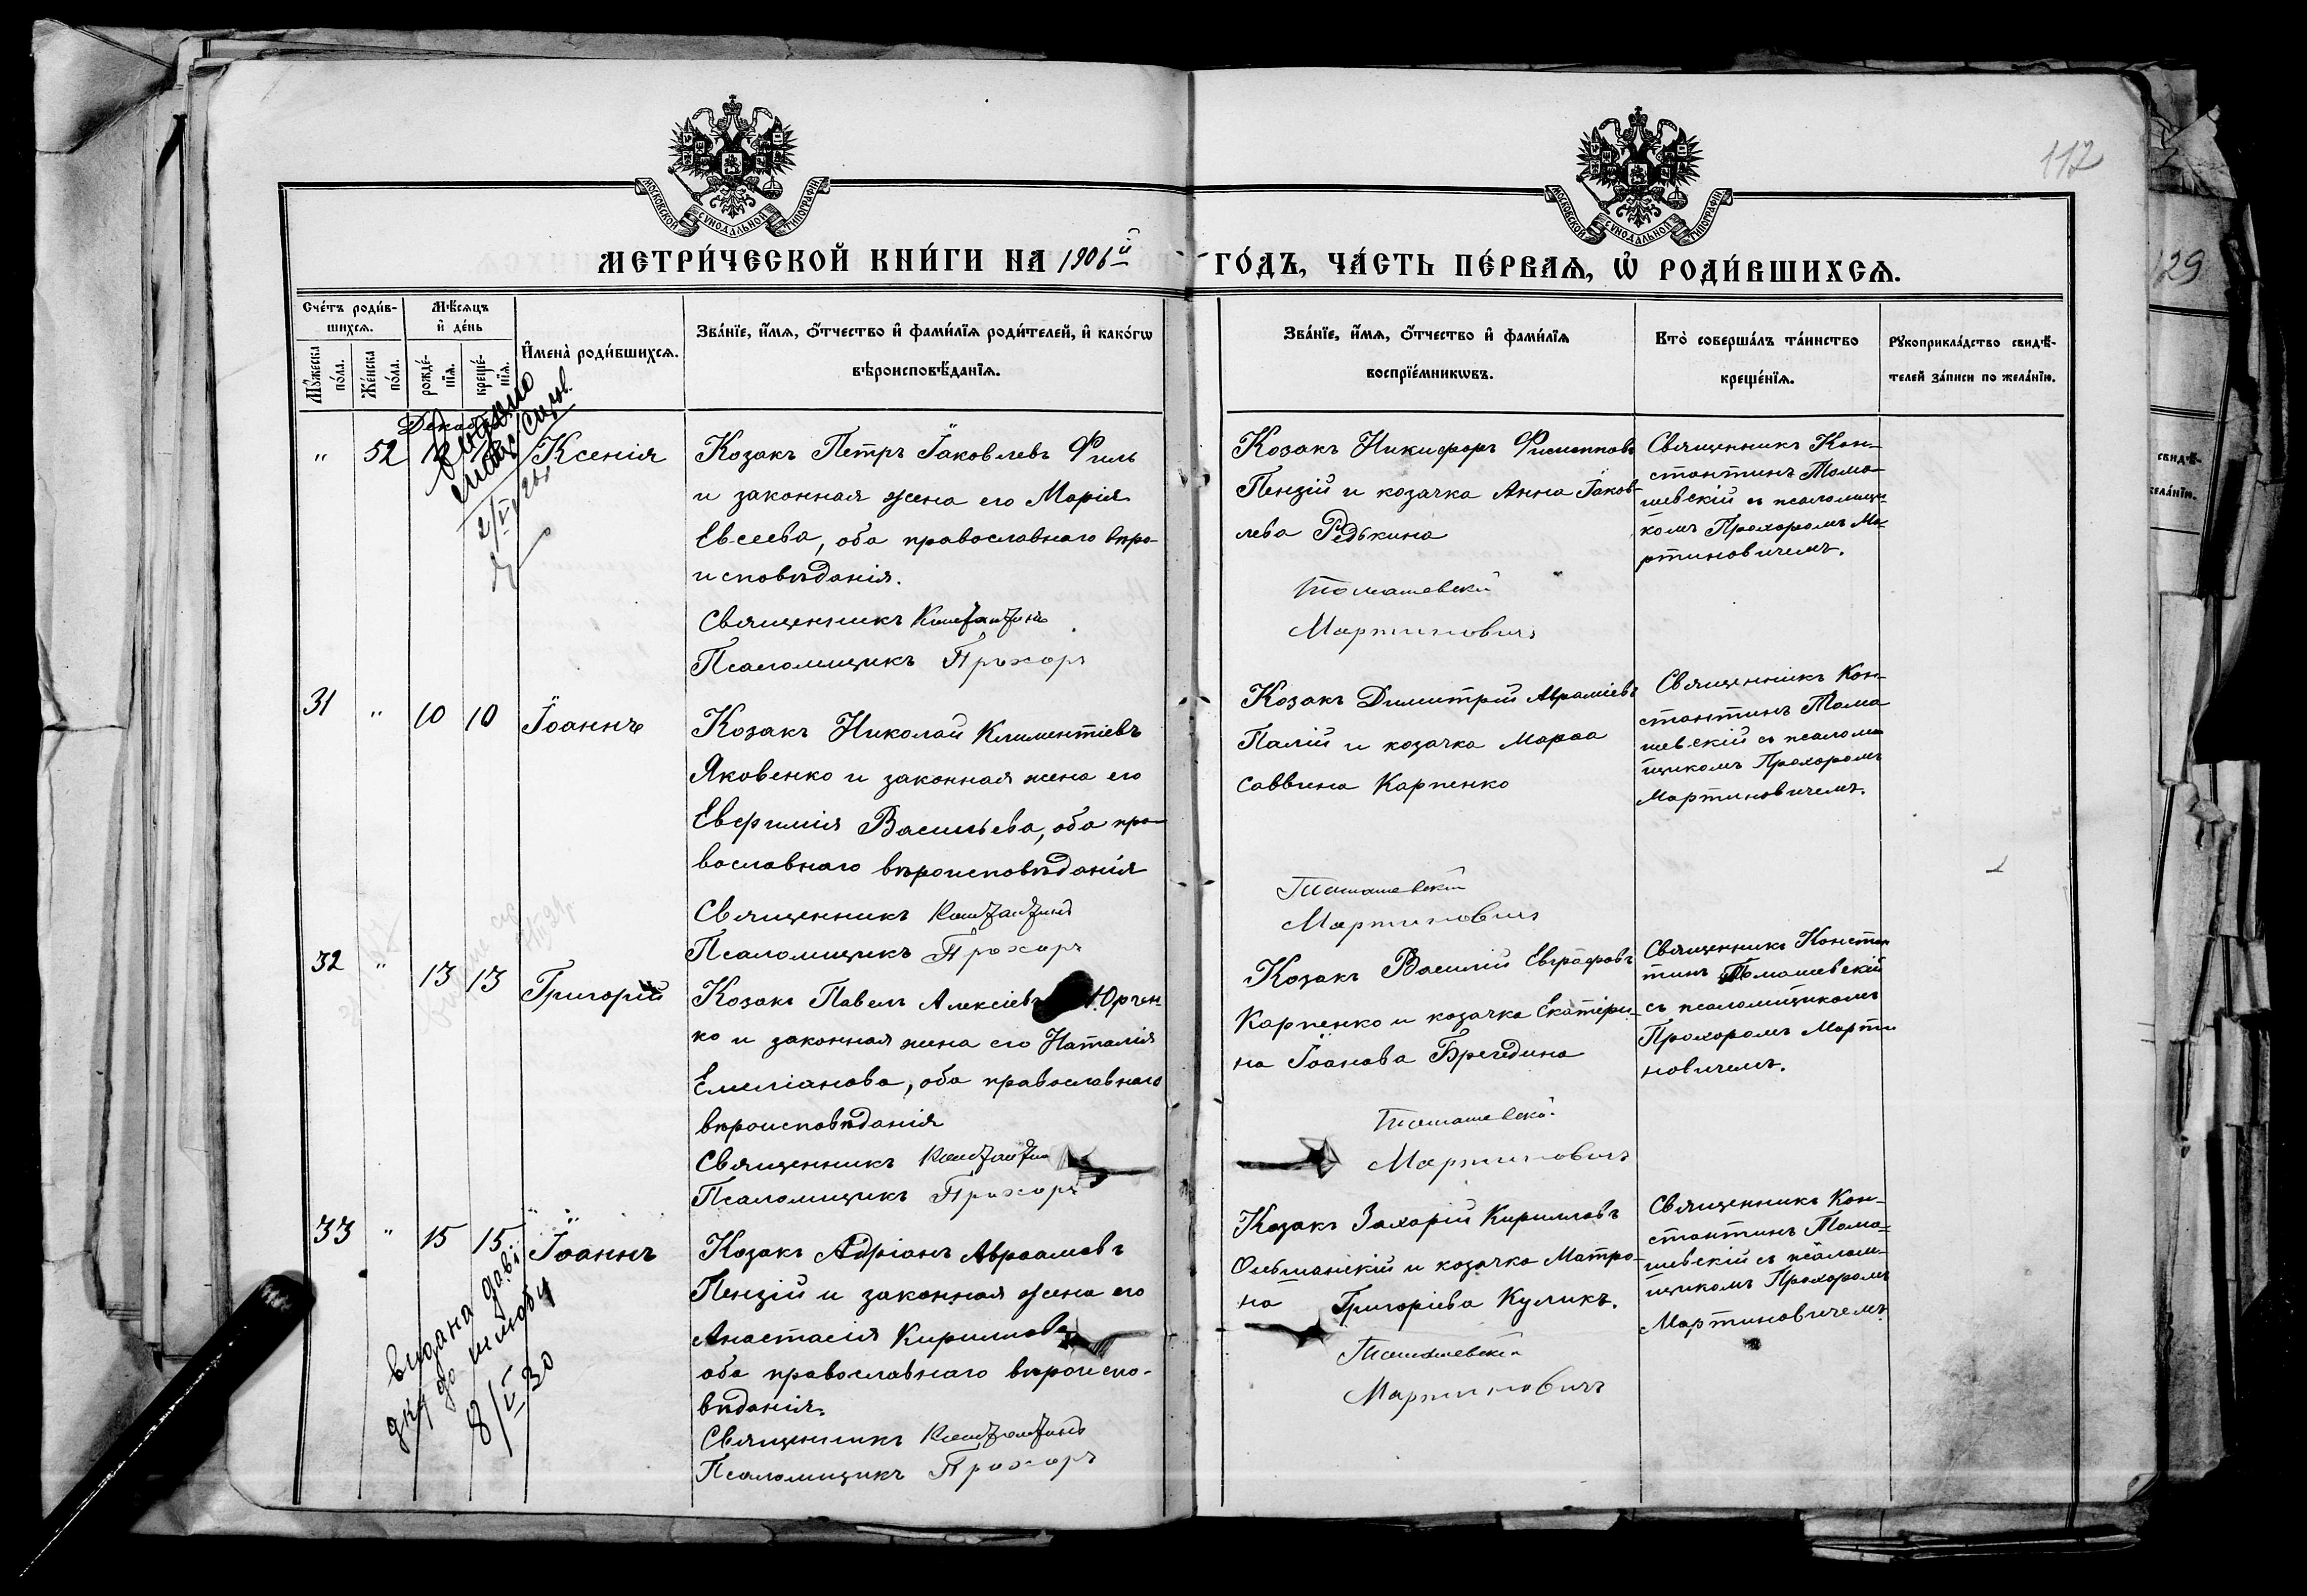 МОСКОВСКОЙ СУНОДАЛЬНОЙ ТИПОГРАФІИ
МОСКОВСКОЙ СУНОДАЛЬНОЙ ТИПОГРАФІИ
117
МЕТРИ́ЧЕСКОЙ КНИ́ГИ НА 1906й
ГО́ДЪ, ЧА́СТЬ ПЕ́РВАѦ, Ѡ҆ РОДИ́ВШИХСѦ.
Сче́тъ роди́в-
шихсѧ.
Мꙋ́жеска
по́ла.
Же́нска
по́ла.
Мѣ́сѧцъ
и҆ де́нь
рожде́-
нїѧ.
креще́-
нїѧ.
И҆мена̀ роди́вшихсѧ.
Зва́нїе, и҆́мѧ, ѻ҆́тчество и҆ фами́лїѧ роди́телей, и҆ како́гѡ
вѣроисповѣ́данїѧ.
Зва́нїе, и҆́мѧ, ѻ҆́тчество и҆ фами́лїѧ
воспрїе́мникѡвъ.
Кто̀ соверша́лъ та́инство
креще́нїѧ.
Рꙋкоприкла́дство свидѣ́-
телей за́писи по жела́нїю.
" 52
Ксенія
Козакъ Петръ Іаковлевъ Филь
и законная жена его Марія
Евсеева, оба православнаго вѣро-
исповѣданія.
Священникъ Константинъ
Псаломщикъ Прохоръ
Козакъ Никифоръ Филипповъ
Пензій и козачка Анна Іаков-
лева Редькина
Томашевскій
Мартиновичъ
Священникъ Кон-
стантинъ Тома-
шевскій съ псаломщи-
комъ Прохоромъ Ма-
ртиновичемъ.
31 " 10 10 Іоаннъ
Козакъ Николай Климентіевъ
Яковенко и законная жена его
Евфимія Васильева, оба пра-
вославнаго вѣроисповѣданія
Священникъ Константинъ
Псаломщикъ Прохоръ
Козакъ Димитрій Авраміевъ
Палій и козачка Марѳа
Саввина Карпенко
Томашевскій
Мартиновичъ
Священникъ Кон-
стантинъ Тома
шевскій съ псалом
щикомъ Прохоромъ
Мартиновичемъ.
32 " 13 13 Григорій
Козакъ Павелъ Алексіевъ Юрчен
ко и законная жена его Наталія
Емеліанова, оба православнаго
вѣроисповѣданія
Священникъ Константинъ
Псаломщикъ Прохоръ
Козакъ Василій Евграфовъ
Карпенко и козачка Екатери-
на Іоанова Брегедина
Томашевскій
Мартиновичъ
Священникъ Констан
тинъ Томашевскій
съ псаломщикомъ
Прохоромъ Марти
новичемъ.
33 " 15 15 Іоаннъ
Козакъ Адріанъ Авраамовъ
Пензій и законная жена его
Анастасія Кириллова
оба православнаго вѣроиспо-
вѣданія.
Священникъ Константинъ
Псаломщикъ Прохоръ
Козакъ Захарій Кирилловъ
Ольшанскій и козачка Матро-
на Григоріева Куликъ.
Томашевскій
Мартиновичъ
Священникъ Кон-
стантинъ Тома-
шевскій съ псалом-
щикомъ Прохоромъ
Мартиновичемъ.
видана даві
дку до шлюбу
8/V 30
129
свидѣ́-